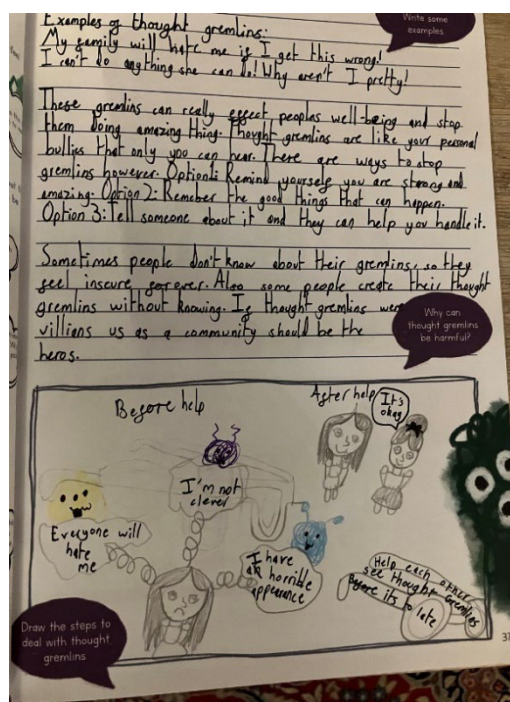 Write some
examples
Examples of thought gremlins:
My family will hate me if I get this wrong!
I can't do anything she can do! Why aren't I pretty!
These gremlins can really effect peoples well-being and stop
them doing amazing thing. Thought gremlins are like your personal
bullies that only you can hear. There are ways to stop
gremlins however. Option1: Remind yourself you are strong and
amazing. Option 2: Remeber the good things that can happen.
Option 3: Tell someone about it and they can help you handle it.
Sometimes people don't know about their gremlins, so they
feel insecure forever. Also some people create their thought
gremlins without knowing. If thought gremlins were
villians us as a community should be the
heros.
Why can
thought gremlins
be harmful?
Before help
After help
It's
okay
I'm not
clever
Everyone will
hate
me
I have
an horrible
appearance
Help each other
see thought gremlins
Before its to late
Draw the steps to
deal with thought
gremlins